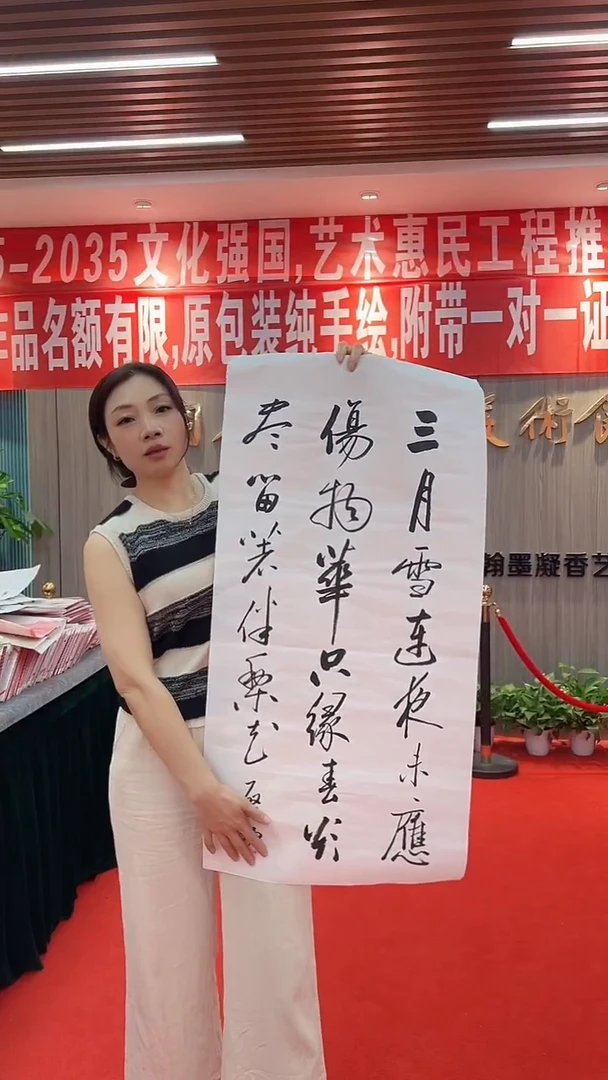 5-2035文化强国,艺术惠民工程推
作品名额有限,原包装纯手绘,附带一对一证
美術館
翰墨凝香艺
三月雪連夜未應
傷物華只緣春欲
盡留著伴梨花